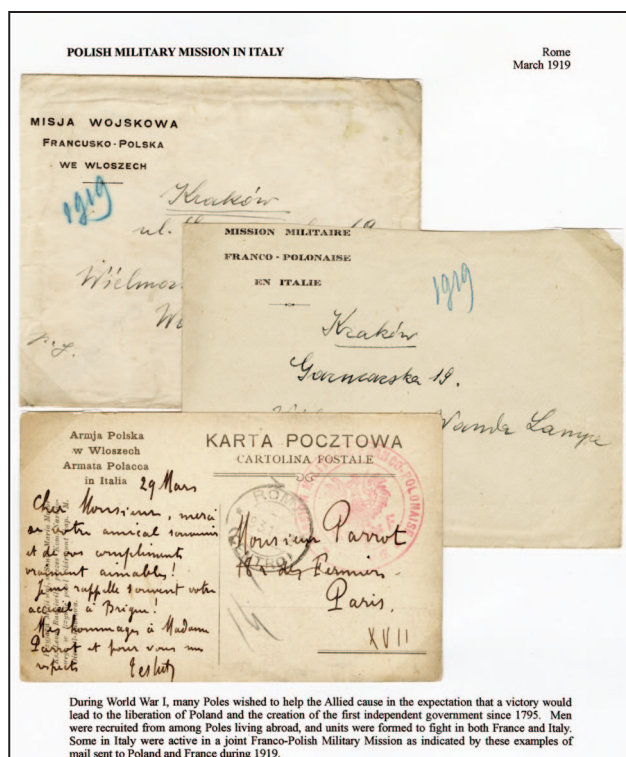 POLISH MILITARY MISSION IN ITALY
Rome
March 1919
MISJA WOJSKOWA
FRANCUSKO-POLSKA
WE WLOSZECH
1919
Kraków
ul. 19
MISSION MILITAIRE
FRANCO-POLONAISE
EN ITALIE
1919
Kraków
Garncarska 19.
Wanda Lampe
Armja Polska
w Wloszech
Armata Polacca
in Italia
KARTA POCZTOWA
CARTOLINA POSTALE
29 Mars
Cher Monsieur, merci
de votre amical souvenir
et de vos compliments
vraiment aimables!
Je me rappelle souvent votre
accueil à Brigue!
Mes hommages à Madame
Parrot et pour vous mes
respects
ROMA
CENTRO
FRANCO-POLONAISE
Monsieur Parrot
18 r des Fermiers
Paris.
XVII
During World War I, many Poles wished to help the Allied cause in the expectation that a victory would
lead to the liberation of Poland and the creation of the first independent government since 1795. Men
were recruited from among Poles living abroad, and units were formed to fight in both France and Italy.
Some in Italy were active in a joint Franco-Polish Military Mission as indicated by these examples of
mail sent to Poland and France during 1919.